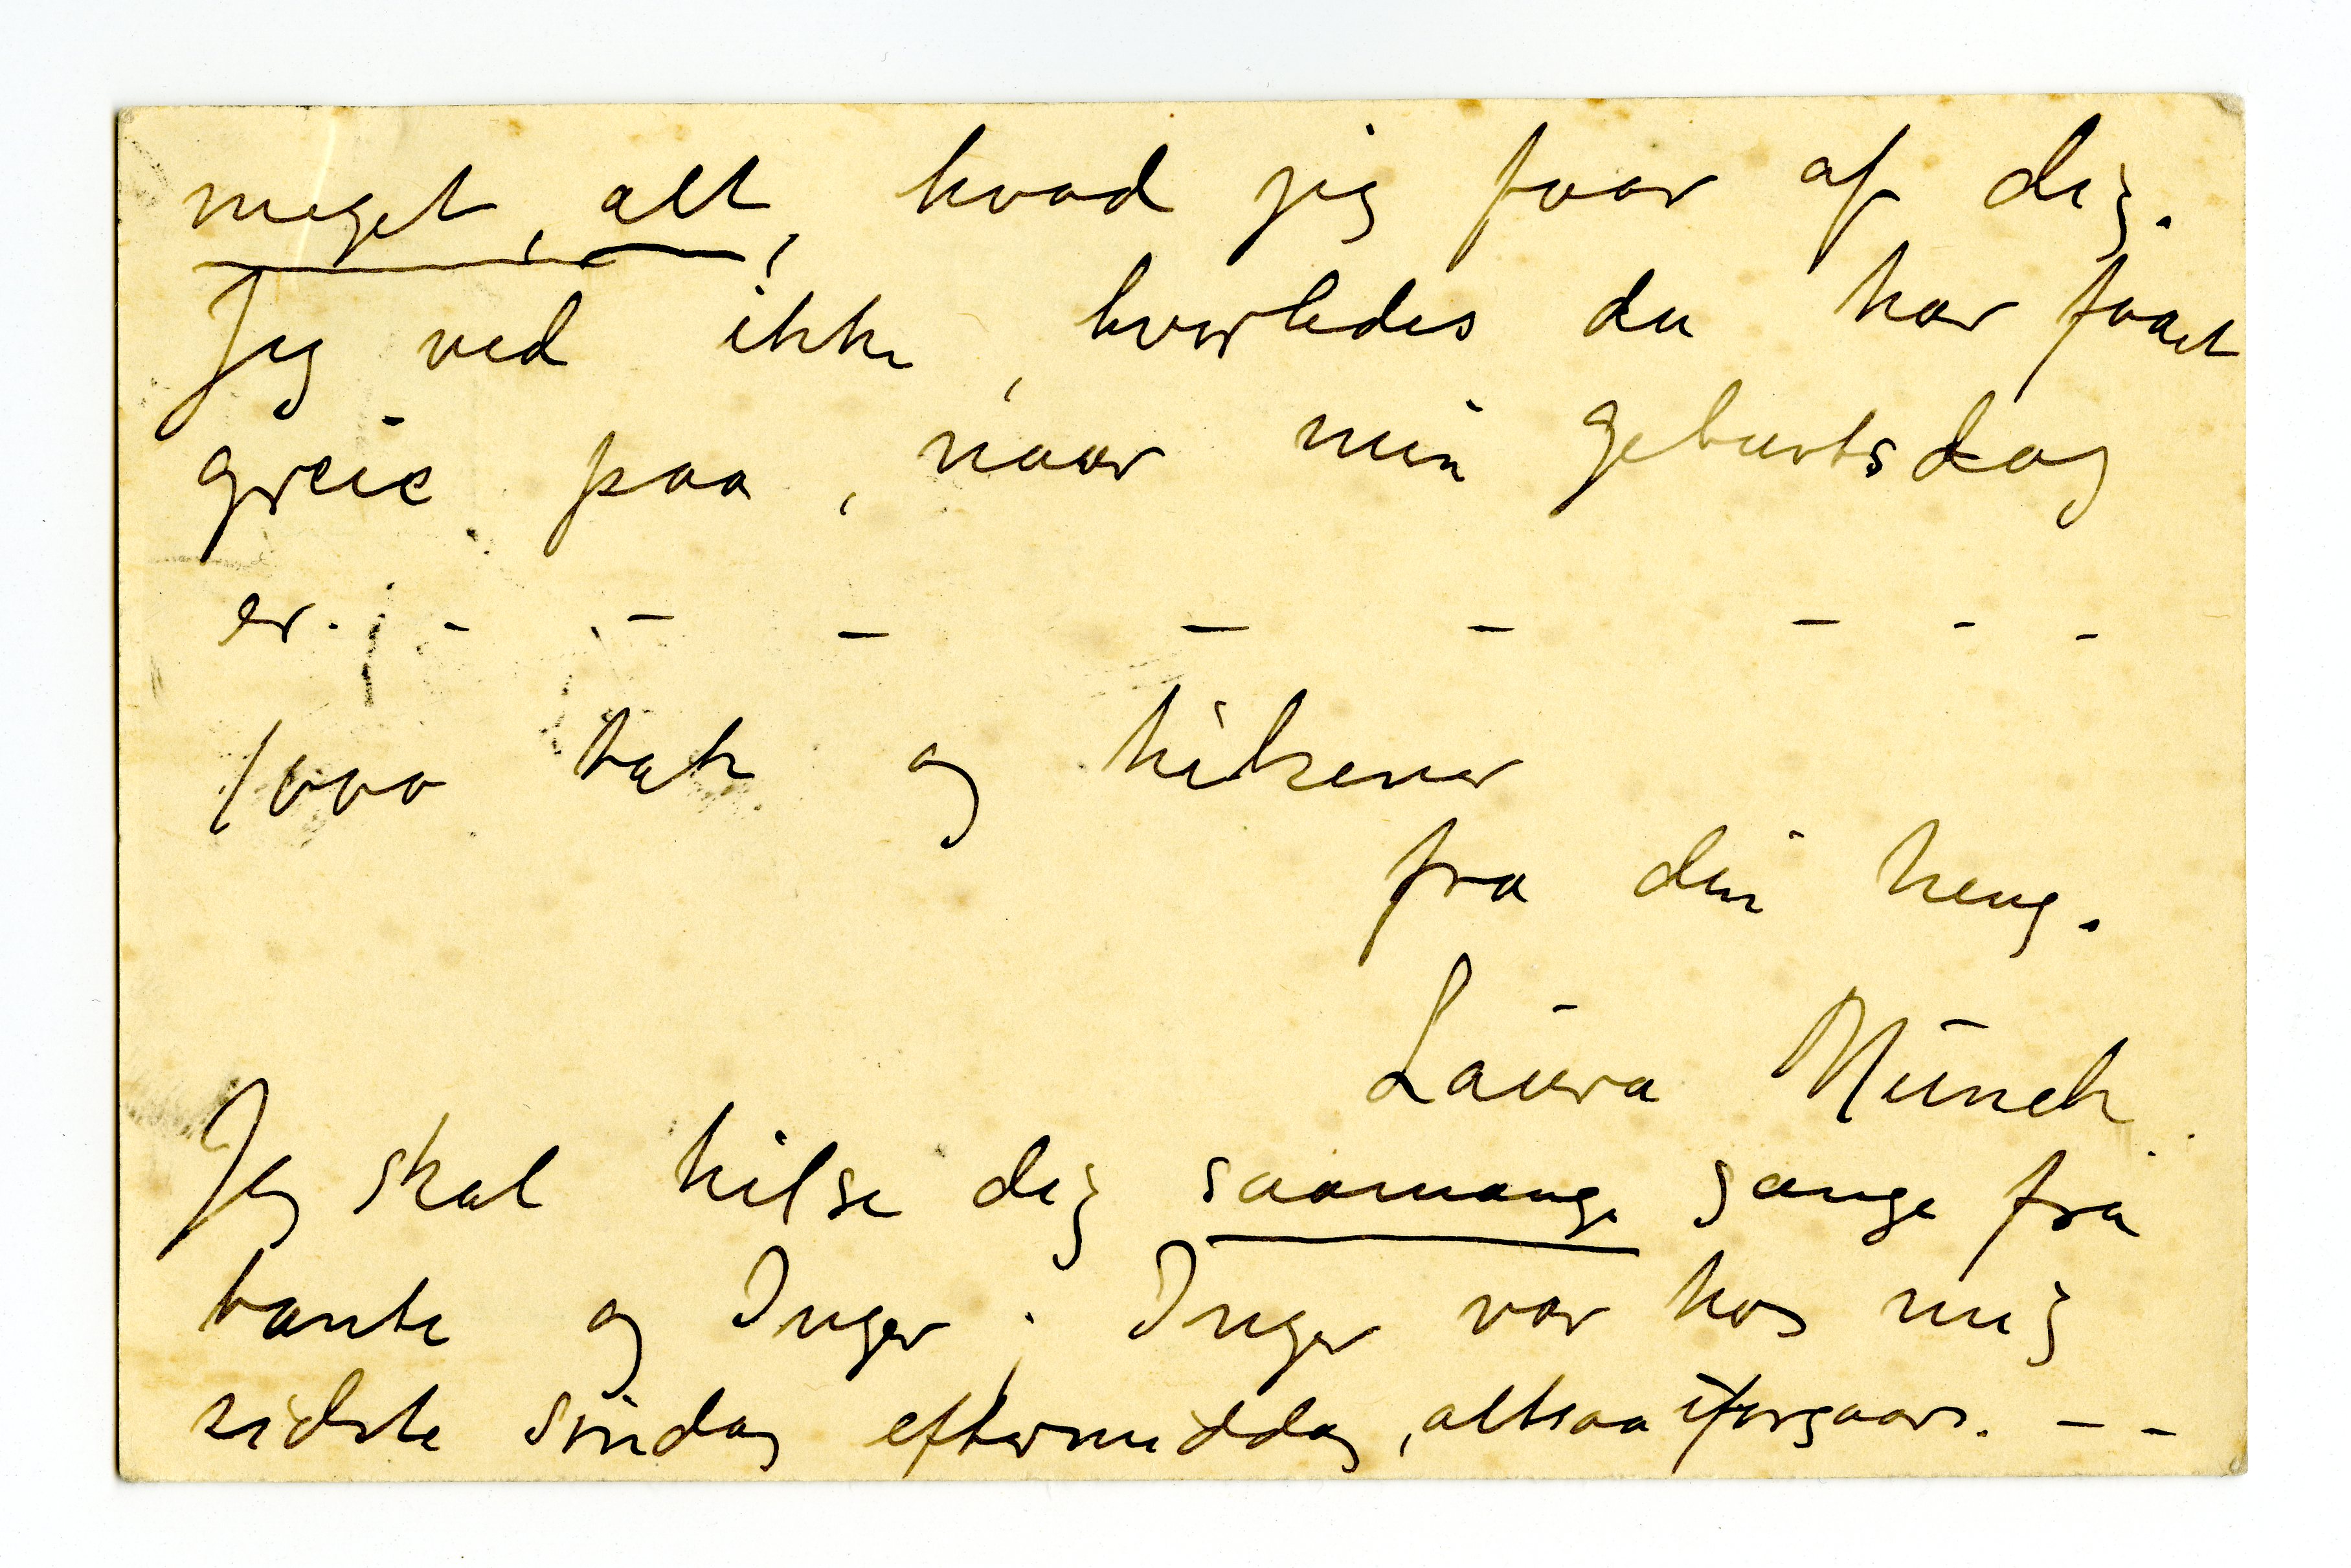 meget, alt, hvad jeg faar af dig.
Jeg ved ikke, hvorledes du har faaet
greie paa, naar min geburtsdag
er. - - - - - - - -
1000 tak og hilsener
fra din heng.
Laura Munch.
Jeg skal hilse dig saamange gange fra
tante og Inger; Inger var hos mig
sidste søndag eftermiddag, altsaa iforgaars. - -